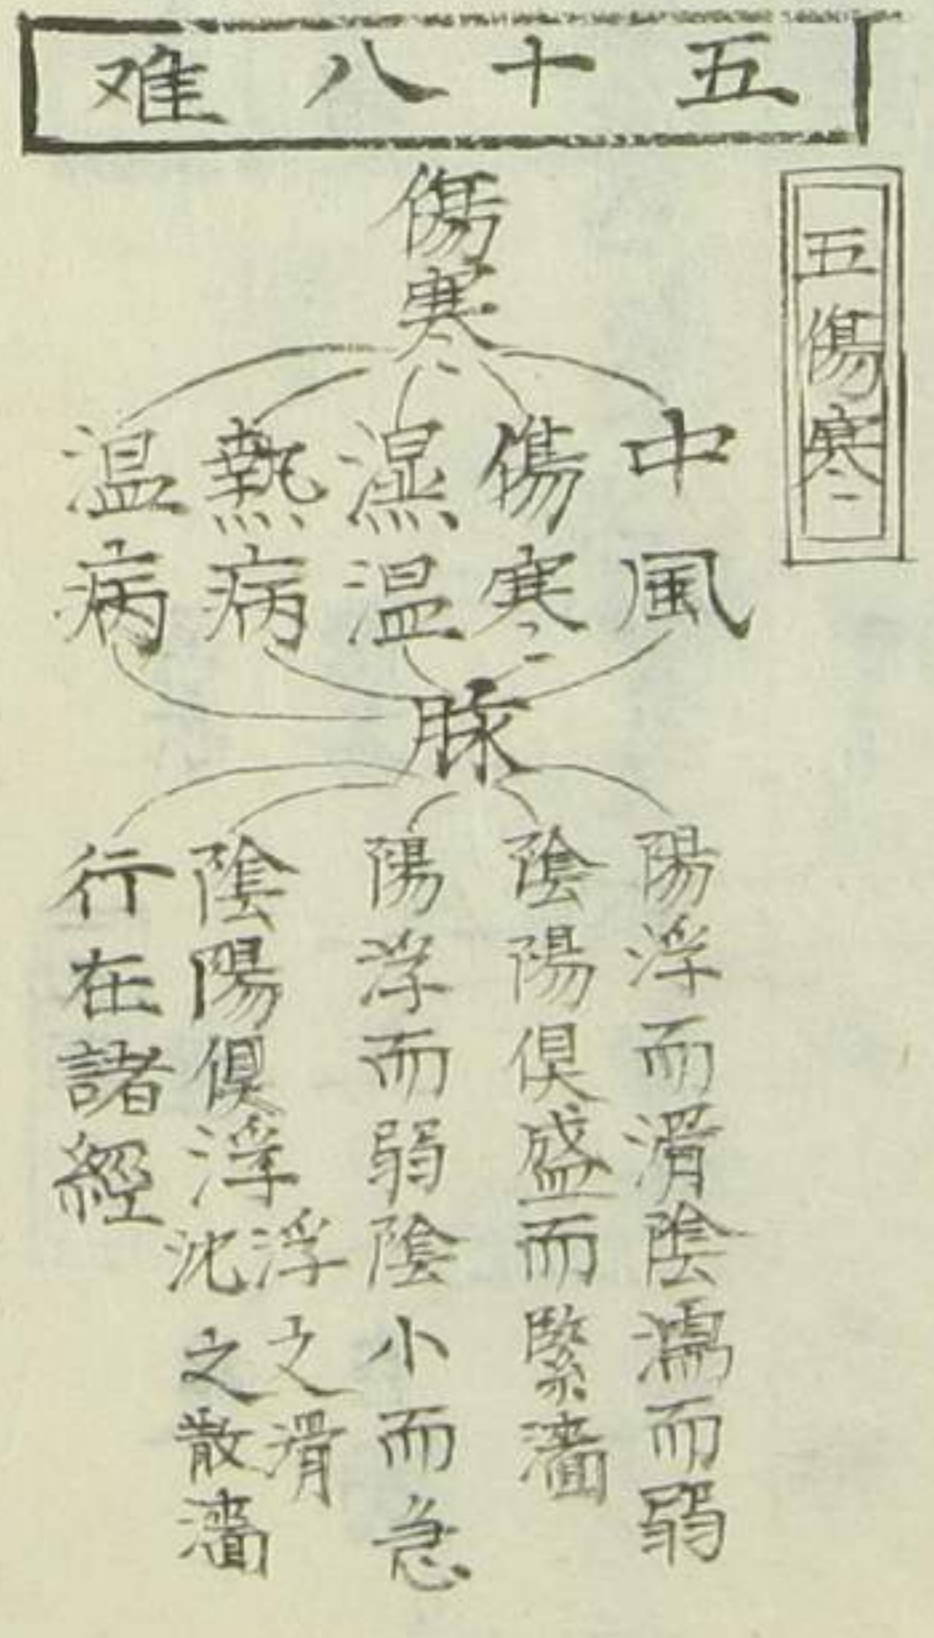 五十八难
五傷寒
傷寒
中風
傷寒
湿温
熱病
温病
脉
陽浮而滑陰濡而弱
陰陽俱盛而緊濇
陽浮而弱陰小而急
陰陽俱浮
浮之滑
沈之散濇
行在諸經